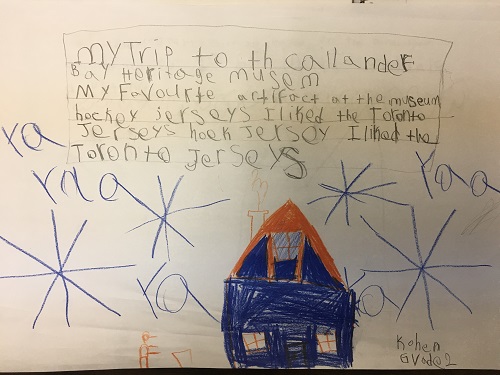 myTrip to th callander
Bay Heritage musem
My Favourite artifact at the museum
hockey jerseys I liked the Toronto
Jerseys hock Jersey I liked the
Toronto jerseys
ya
yaa
yaa
ya
ya
Kohen
Grade 2